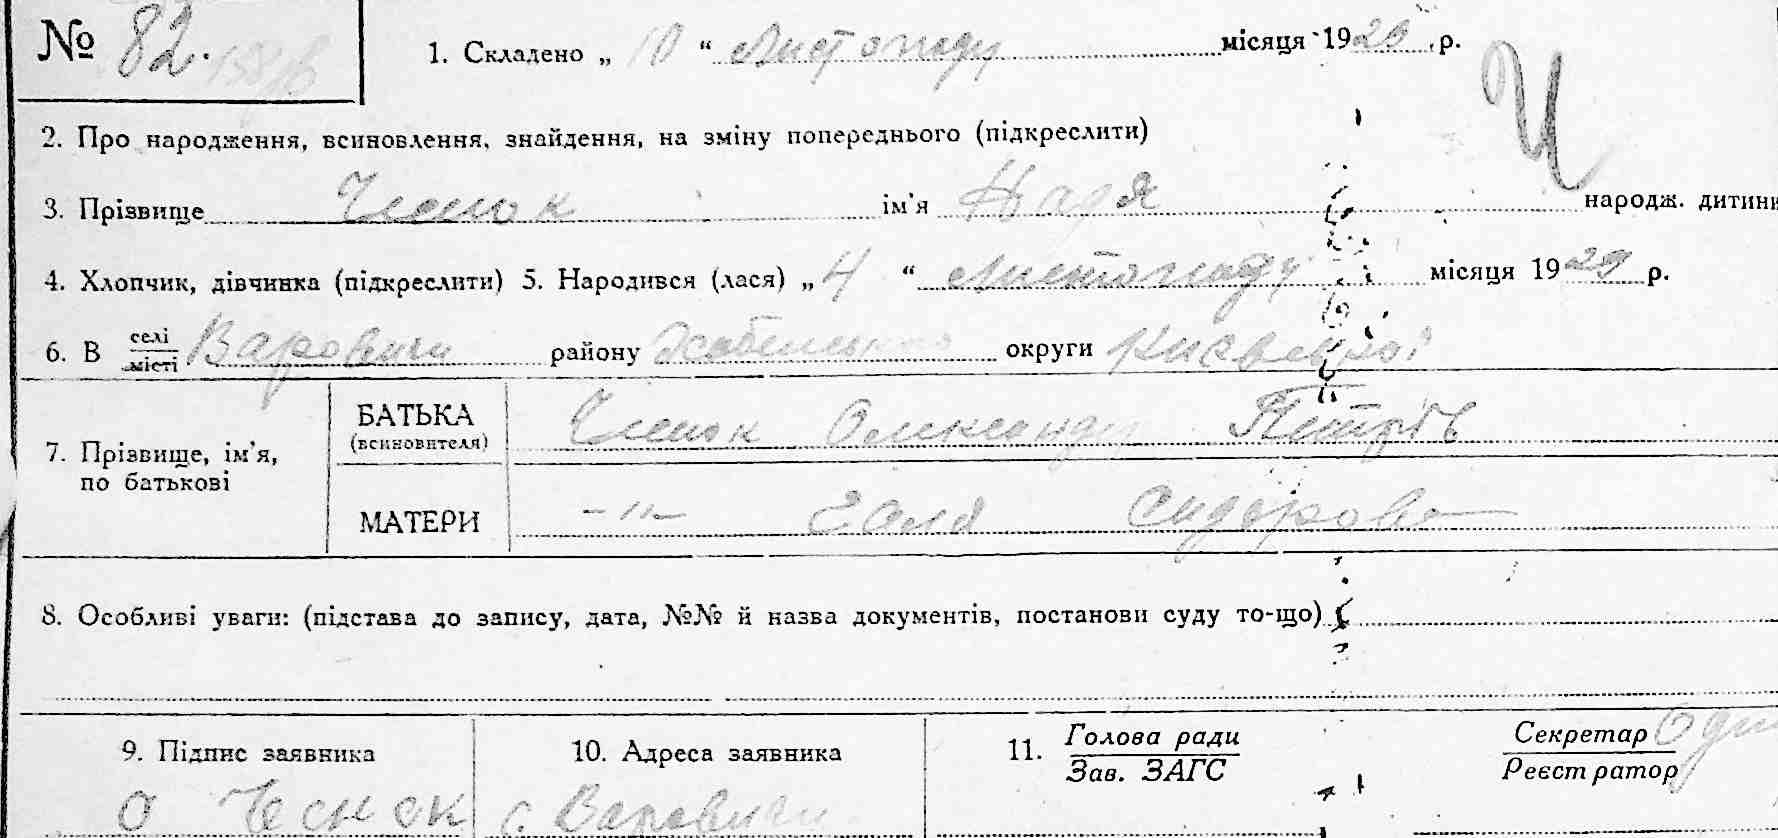 № 82.
1. Складено „ 10 “ Листопаду місяця 1929 р.
2. Про народження, всиновлення, знайдення, на зміну попереднього (підкреслити)
3. Прізвище Чеснок ім'я Надя народж. дитини
4. Хлопчик, дівчинка (підкреслити) 5. Народився (лася) „ 4 “ Листопаду місяця 1929 р.
6. В селі/місті Варовичи району округи Київської
7. Прізвище, ім'я, по батькові
БАТЬКА (всиновителя) Чеснок Олександр Петрів
МАТЕРИ -"- Галя Сидорова
8. Особливі уваги: (підстава до запису, дата, №№ й назва документів, постанови суду то-що)
9. Підпис заявника 10. Адреса заявника 11. Голова ради/Зав. ЗАГС Секретар/Реєстратор
О Чеснок с. Варовичи